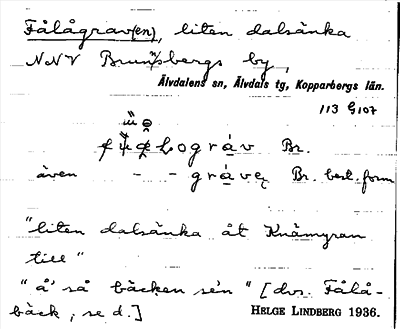 Fålågrav(en), liten dalsänka
NNV Brunnsbergs by,
Älvdalens sn, Älvdals tg, Kopparbergs län.
113 G107
ográv Br.
även - - gráve Br. best. form
"liten dalsänka åt Knåmyran
till"
"å' så bäcken se'n" [dvs. Fålå-
bäck, se d.] HELGE LINDBERG 1936.